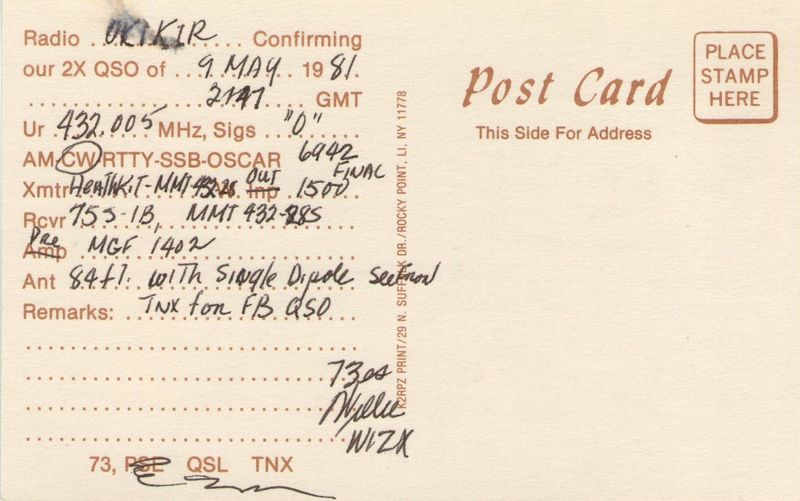 Radio OK1KIR Confirming
our 2X QSO of 9 MAY 1981.
2147 GMT
Ur 432.005 MHz, Sigs "O"
AM-CW-RTTY-SSB-OSCAR 6942
FINAL
Xmtr HeathKit-MMT 432-28 OUT Inp 1500
Rcvr 75S-1B, MMT 432-28S
Pre Amp MGF 1402
Ant 84ft. with Single Dipole See Front
Remarks: TNX for FB QSO
73es
Willie
W1ZX
73, PSE QSL TNX
K2RPZ PRINT/29 N. SUFFOLK DR./ROCKY POINT, LI, NY 11778
Post Card
This Side For Address
PLACE
STAMP
HERE